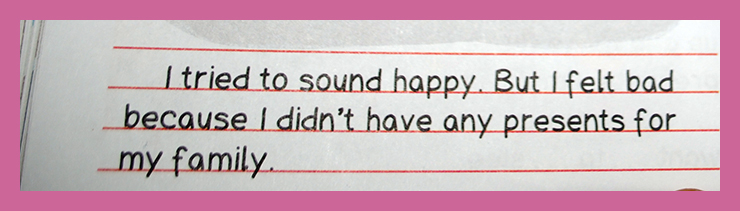 I tried to sound happy. But I felt bad
because I didn't have any presents for
my family.